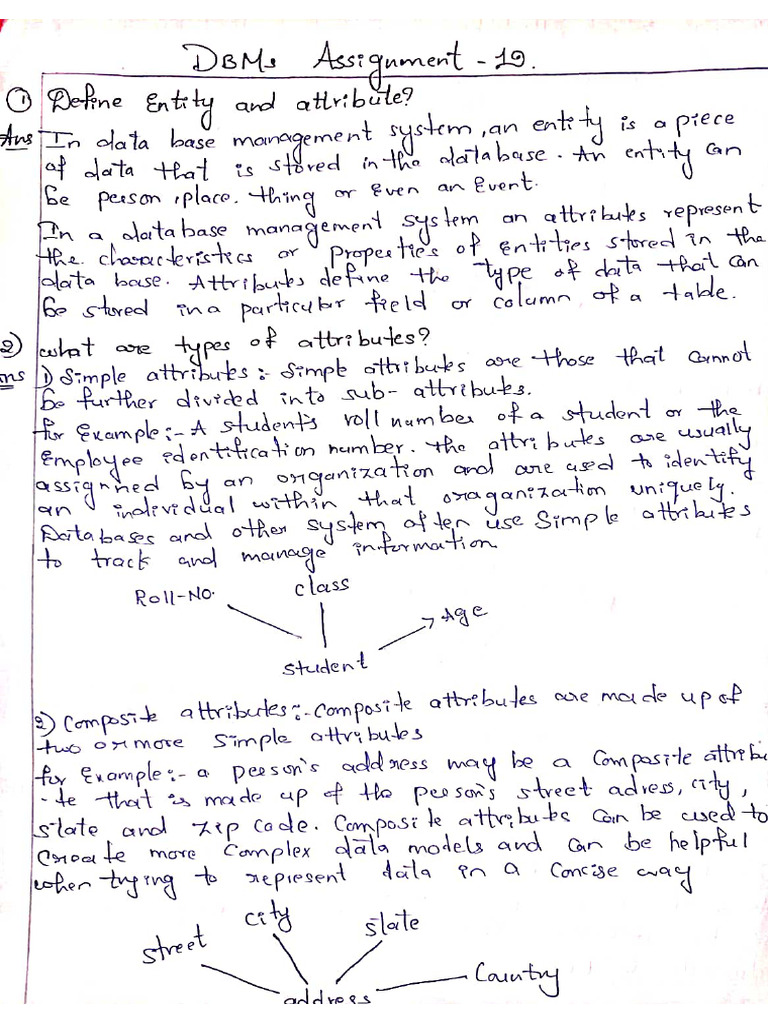 DBMs Assignment - 19.
① Define Entity and attribute?
Ans In data base management system, an entity is a piece
of data that is stored in the database. An entity can
be person, place. thing or even an Event.
In a database management system an attributes represent
the characteristics or properties of entities stored in the
data base. Attributes define the type of data that can
be stored in a particular field or column of a table.
2) what are types of attributes?
ns 1) Simple attributes:- Simple attributes are those that cannot
be further divided into sub-attributes.
for Example:- A student's roll number of a student or the
Employee identification number. the attributes are usually
assignned by an organization and are used to identify
an individual within that oraganization uniquely.
Databases and other system often use Simple attributes
to track and manage information
Roll-No. class Age
student
2) Composite attributes:- Composite attributes are made up of
two or more simple attributes
for Example:- a person's address may be a Composite attribu
-te that is made up of the person's street adress, city,
state and zip code. Composite attributes can be used to
Create more Complex data models and can be helpful
when trying to represent data in a concise way
street city state Country
address